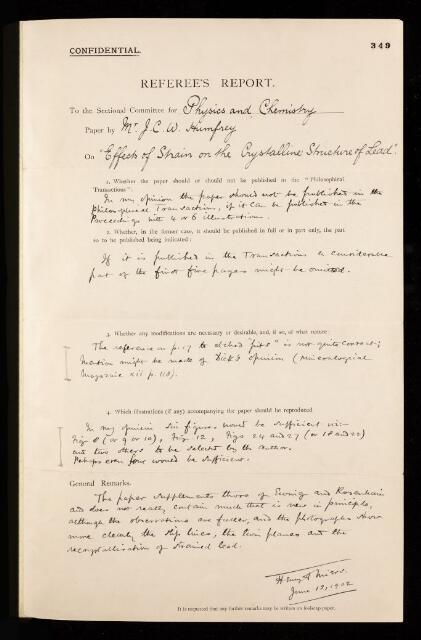 349
CONFIDENTIAL.
REFEREE'S REPORT.
To the Sectional Committee for Physics and Chemistry
Paper by Mr. J. C. W. Humfrey
On "Effects of Strain on the Crystalline Structure of Lead".
1. Whether the paper should or should not be published in the "Philosophical
Transactions":
In my opinion the paper should not be published in the
Philosophical Transactions, if it can be published in the
Proceedings with 4 or 6 illustrations.
2. Whether, in the former case, it should be published in full or in part only, the part
so to be published being indicated:
If it is published in the Transactions a considerable
part of the first five pages might be omitted.
3. Whether any modifications are necessary or desirable, and, if so, of what nature:
The reference on p. 17 to etched "pits" is not quite correct;
mention might be made of opinion (Mineralogical
Magazine xii p. 118).
4. Which illustrations (if any) accompanying the paper should be reproduced
In my opinion six figures would be sufficient viz:-
Fig 8 (or 9 or 10), Fig 12, Figs 24 and 27 (or 18 and 22)
and two others to be selected by the author.
Perhaps even four would be sufficient.
General Remarks.
The paper supplements those of Ewing and Rosenhain
and does not really contain much that is new in principle,
although the observations are fuller, and the photographs show
more clearly the slip lines, the twin planes and the
recrystallisation of strained lead.
Henry A Miers.
June 12, 1902
It is requested that any further remarks may be written on foolscap paper.